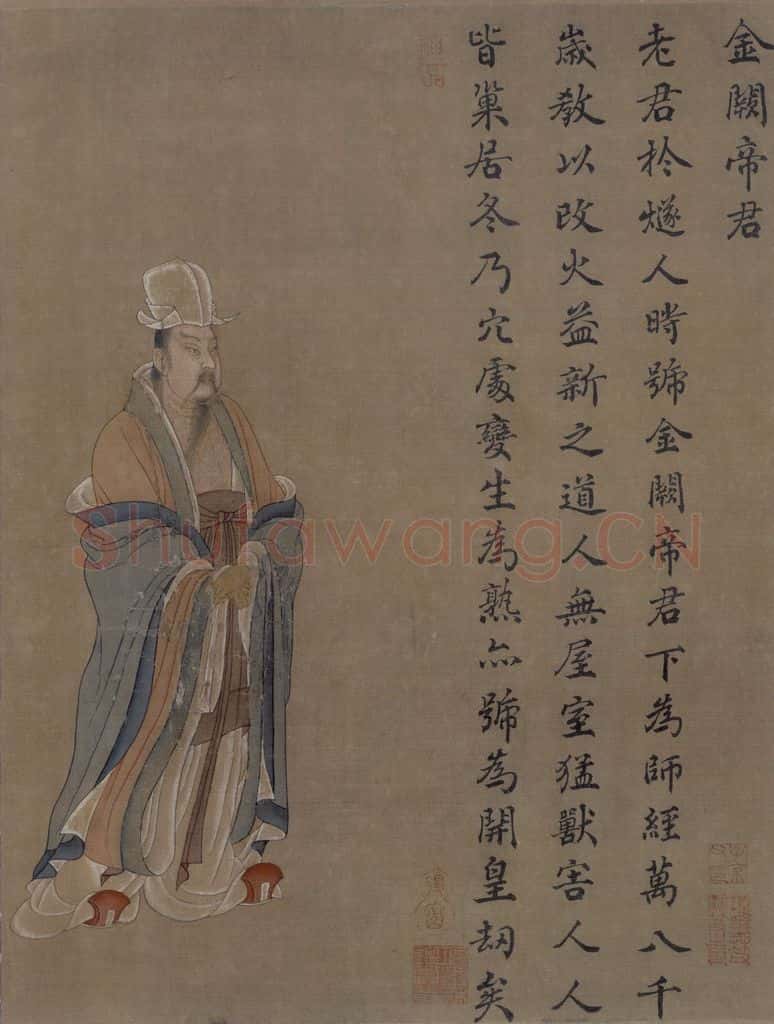 金闕帝君
老君於燧人時號金闕帝君下為師經萬八千
歲教以改火益新之道人無屋室猛獸害人人
皆巢居冬乃穴處變生為熟亦號為開皇劫矣
Shufawang.CN